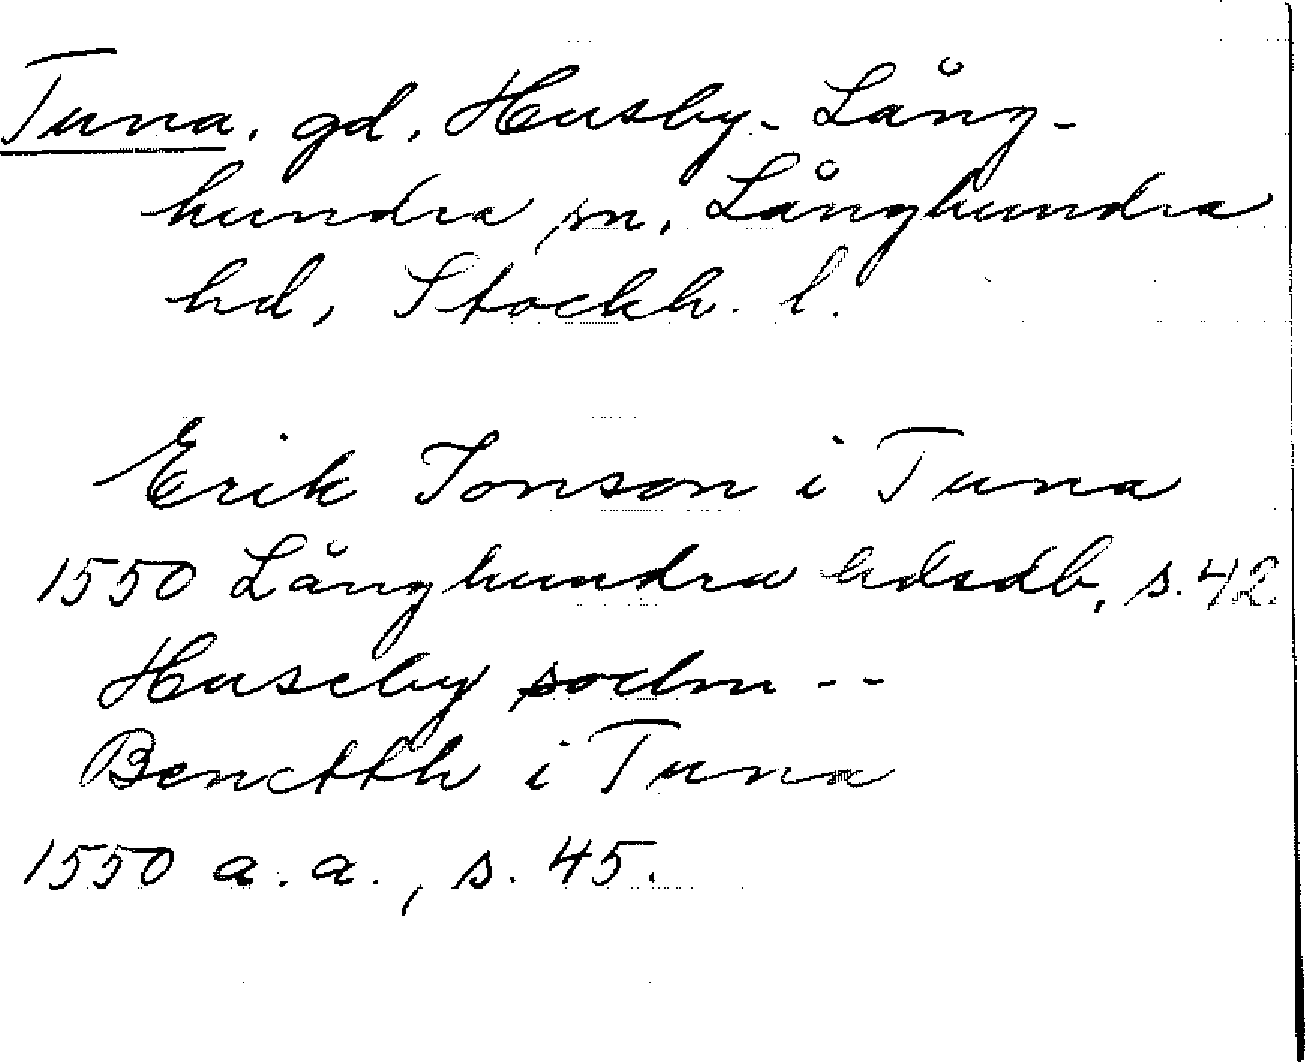 Tuna. gd. Husby-Lång-
hundra sn. Långhundra
hd, Stockh. l.
Erik Jonson i Tuna
1550 Långhundra hdsdb, s. 42.
Huseby sochn --
Benctth i Tuna
1550 a. a., s. 45.